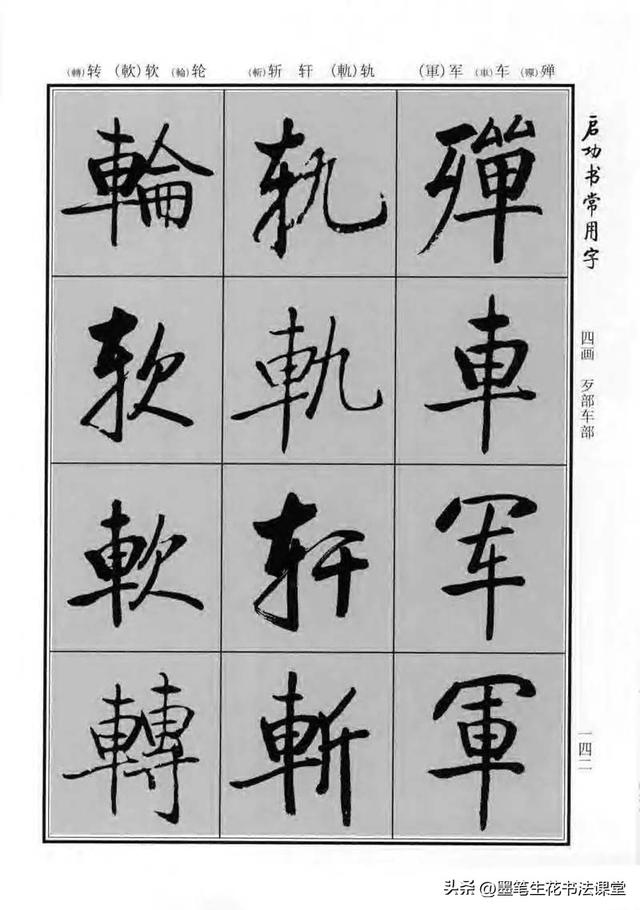 (轉)转 (軟)软 (輪)轮 (斬)斩 轩 (軌)轨 (軍)军 (車)车 (殫)殚
启功书常用字
四画 歹部车部
一四二
殫
車
军
軍
轨
軌
轩
斬
輪
软
軟
轉
头条 @墨笔生花书法课堂